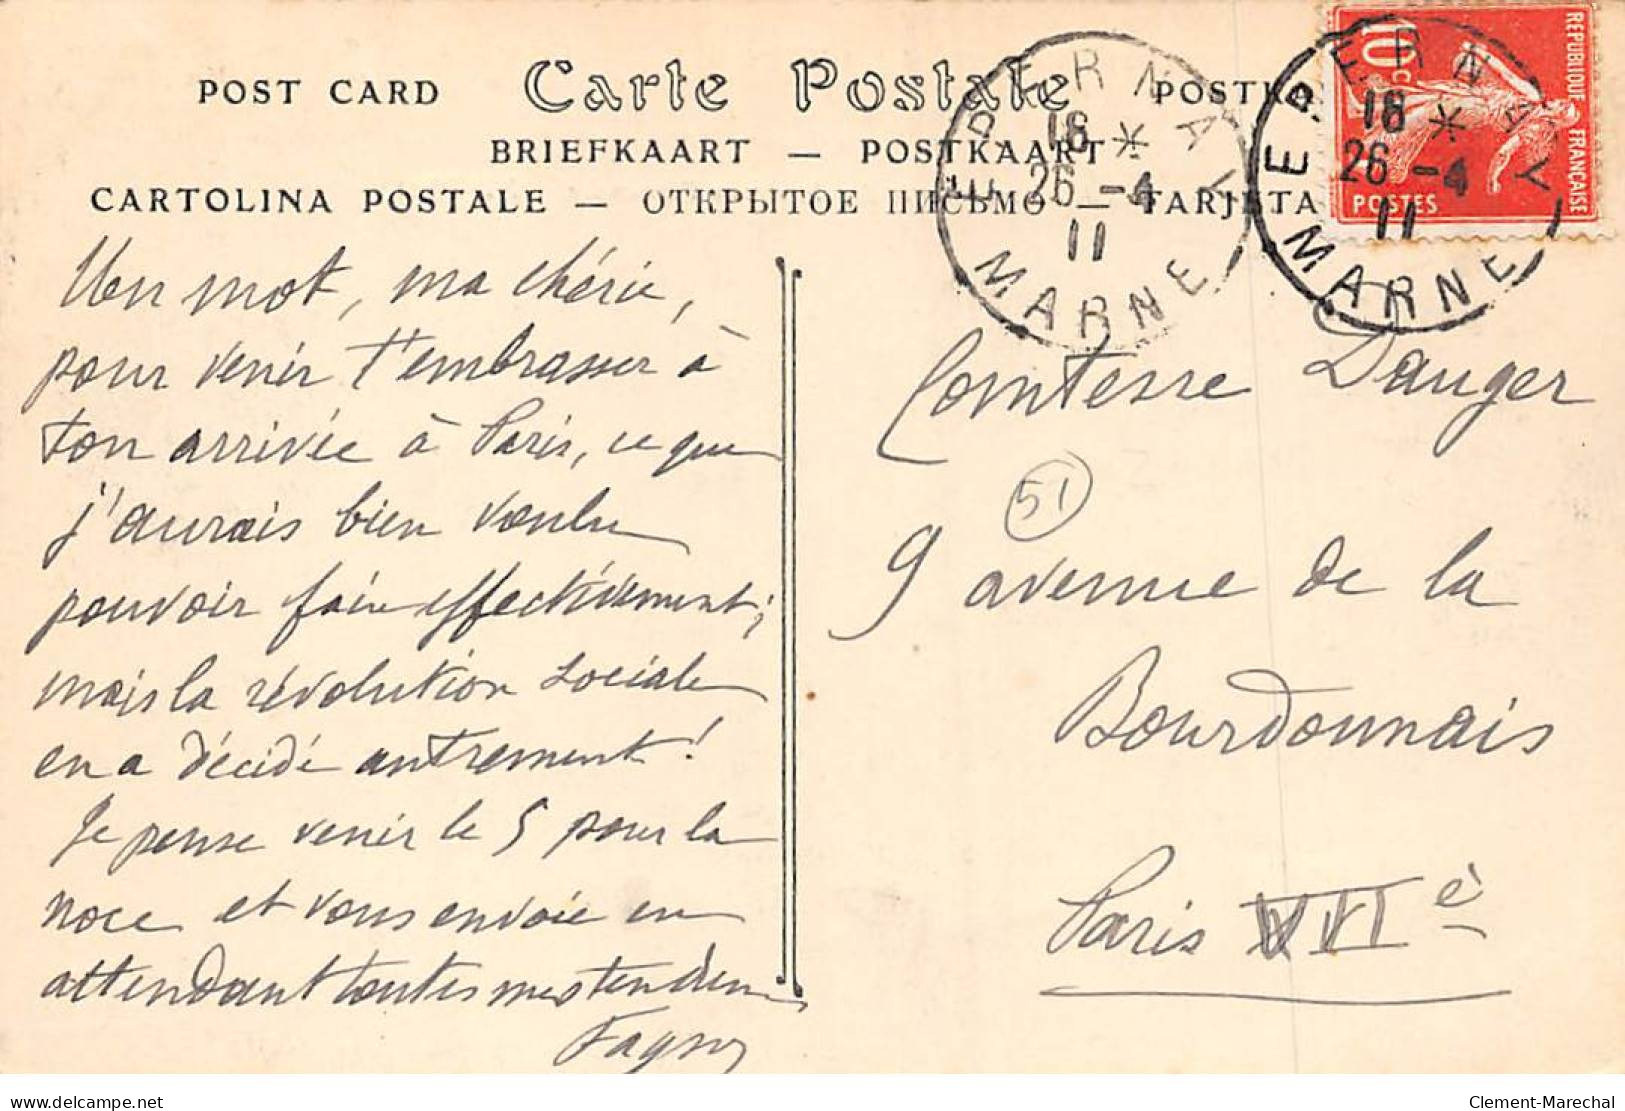 POST CARD Carte Postale POSTK
BRIEFKAART — POSTKAART
CARTOLINA POSTALE — ОТКРЫТОЕ ПИСЬМО — TARJETA
EPERNAY
18 *
26 -4
11
MARNE
EPERNAY
18 *
26 -4
11
MARNE
10c
REPUBLIQUE FRANÇAISE
POSTES
Un mot, ma chérie,
pour venir t'embrasser à
ton arrivée à Paris, ce que
j'aurais bien voulu
pouvoir faire effectivement ;
mais la révolution sociale
en a décidé autrement !
Je pense venir le 5 pour la
noce et vous envoie en
attendant toutes mes tendresses
Comtesse Dauger
51
9 avenue de la
Bourdonnais
Paris VIIè
delcampe.net
Clement-Marechal